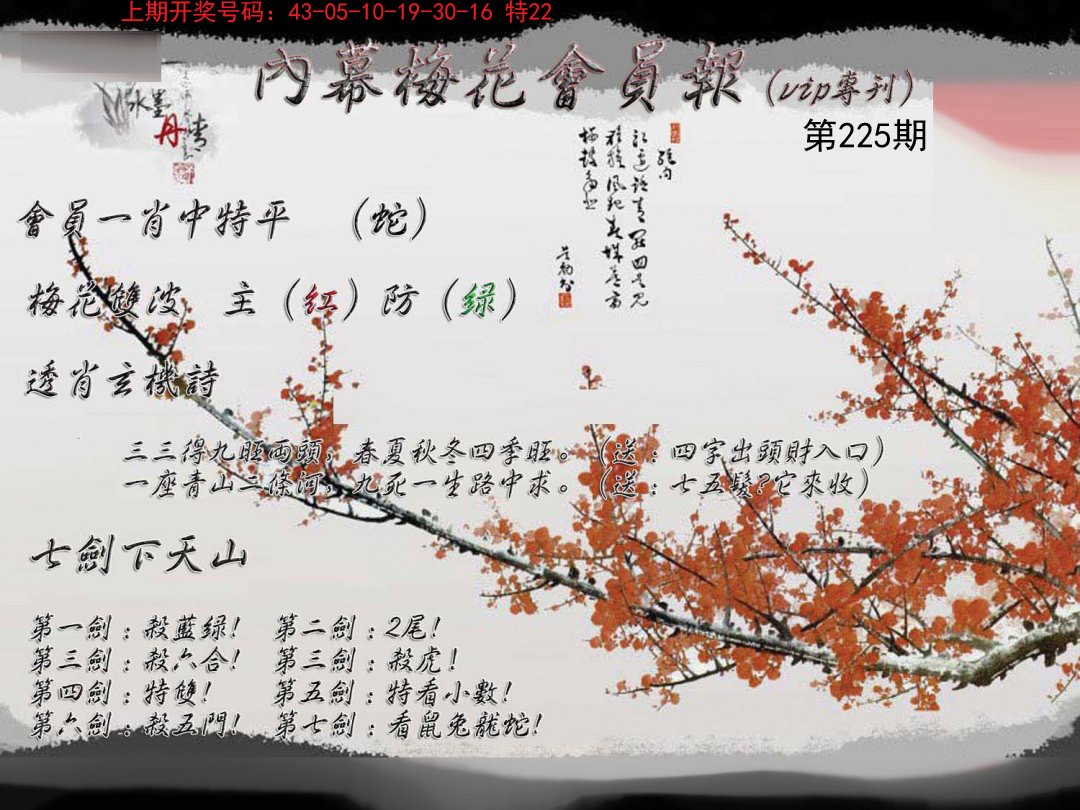 上期开奖号码：43-05-10-19-30-16 特22
內幕梅花會員報（vip專刊）
第225期
水墨
丹青
會員一肖中特平　（蛇）
梅花雙波　主（红）防（绿）
透肖玄機詩
三三得九旺両頭，春夏秋冬四季旺。（送：四字出頭財入口）
一座青山二條河，九死一生路中求。（送：七五髮?它來收）
七劍下天山
第一劍：殺藍绿！　第二劍：2尾！
第三劍：殺六合！　第三劍：殺虎！
第四劍：特雙！　第五劍：特看小數！
第六劍：殺五門！　第七劍：看鼠兔龍蛇！